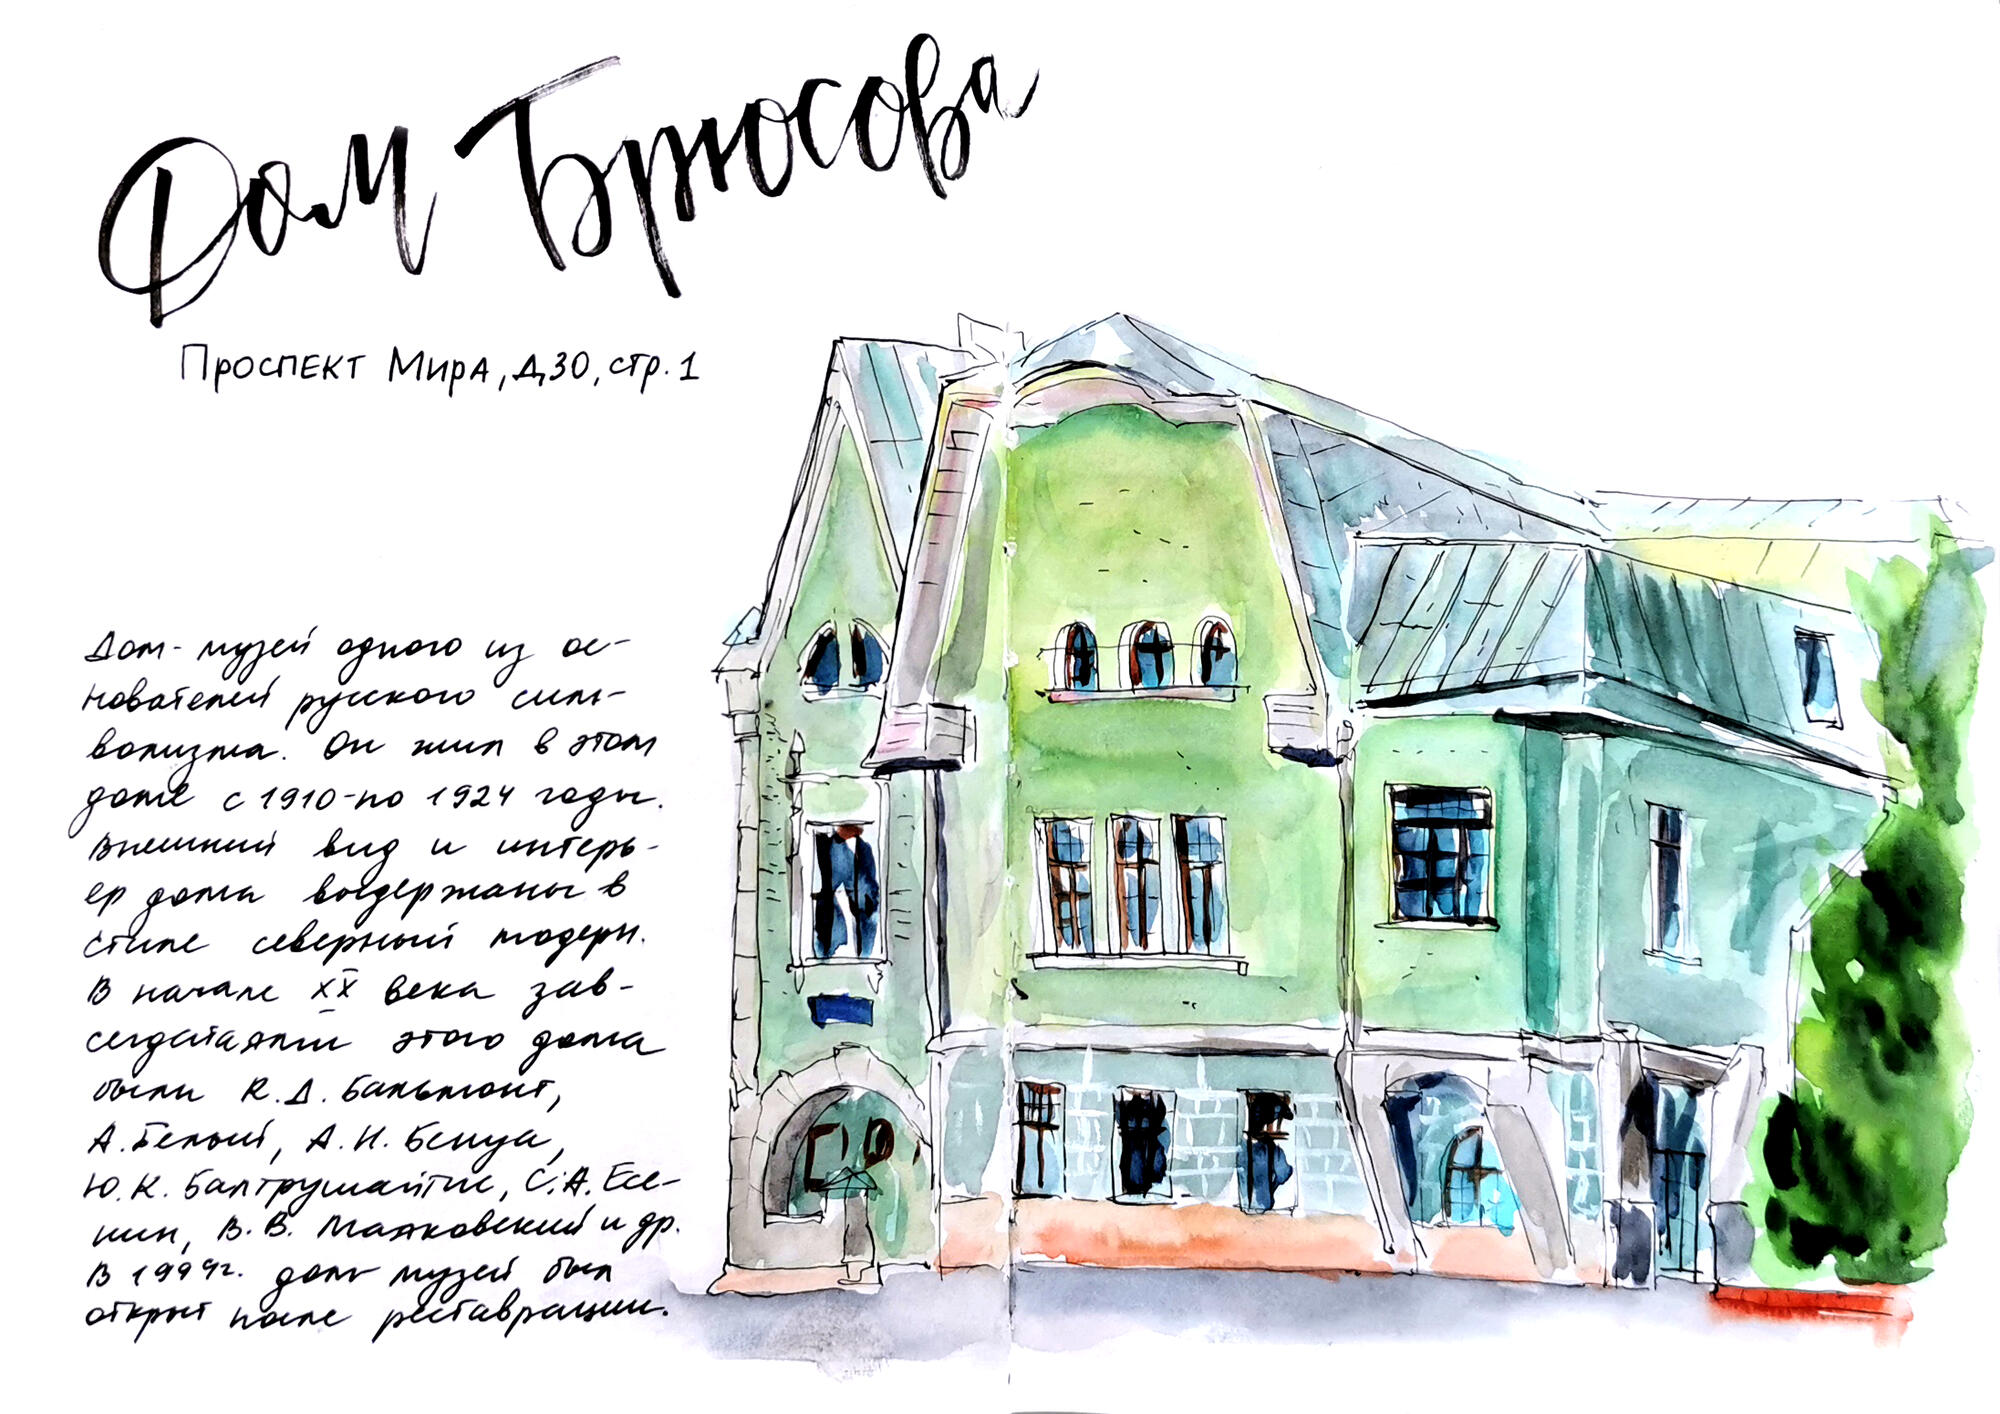 Дом Брюсова
Проспект Мира, д30, стр. 1
Дом-музей одного из ос-
нователей русского сим-
волизма. Он жил в этом
доме с 1910-по 1924 годы.
Внешний вид и интерь-
ер дома выдержаны в
стиле северный модерн.
В начале XX века зав-
сегдатаями этого дома
были К. Д. Бальмонт,
А. Белый, А. Н. Бенуа,
Ю. К. Балтрушайтис, С. А. Есе-
нин, В. В. Маяковский и др.
В 1999г. дом музей был
открыт после реставрации.